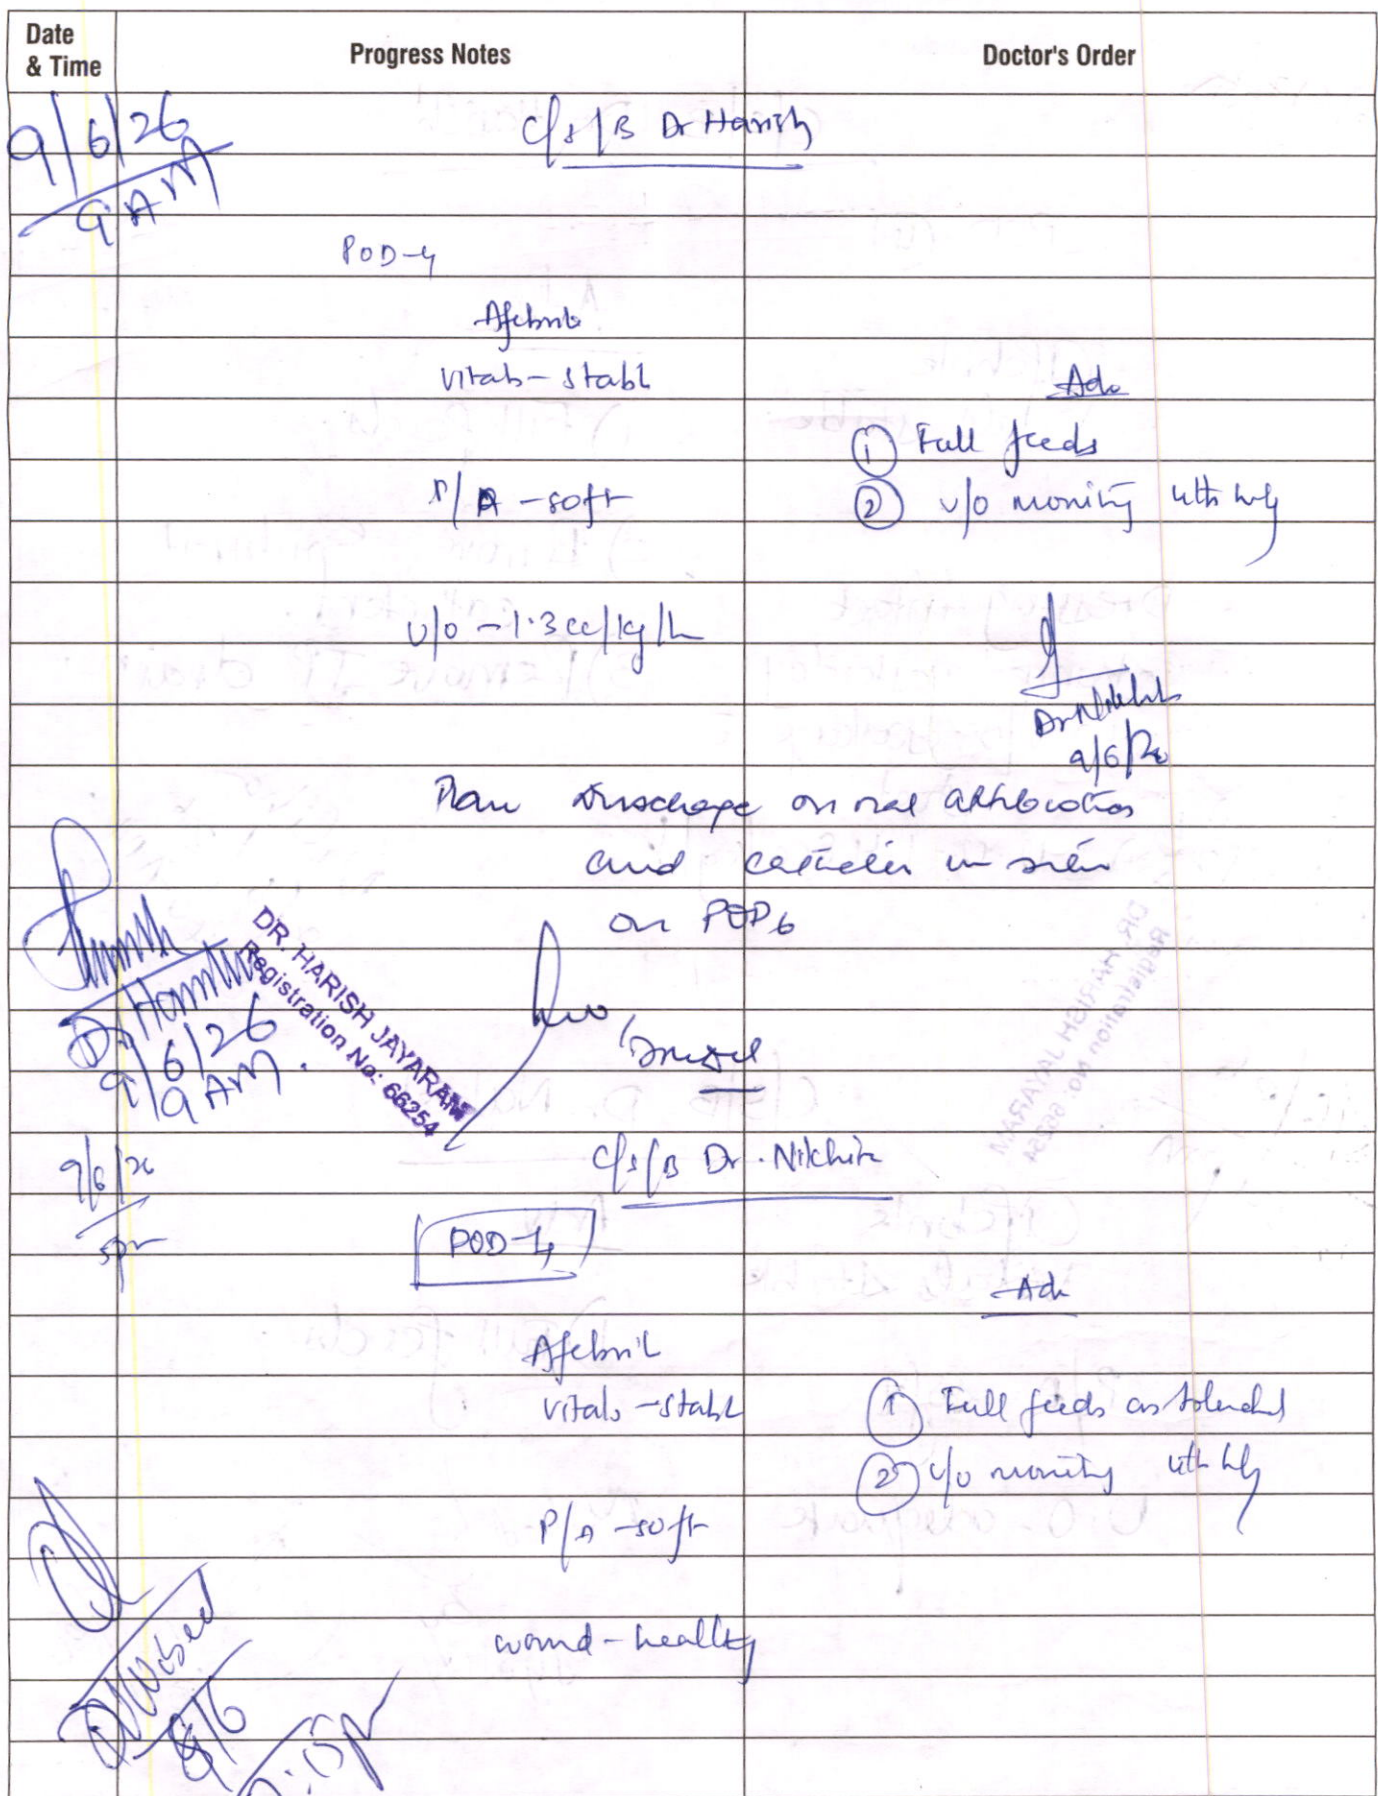 Date & Time
Progress Notes
Doctor's Order
9/6/26
9 AM
C/s/B Dr Harish
POD-4
Afebrile
vitals - stabl
Adv
① Full feeds
P/A - soft
② u/o monitoring 4th hrly
u/o - 1.3 cc/kg/h
Dr Nikhita
9/6/26
Plan discharge on oral antibiotics
and catheter in situ
on POD 6
Dr Harish
9/6/26
9 AM
DR. HARISH JAYARAM
Registration No: 66254
9/6/26
5pm
C/s/B Dr. Nikhita
POD-4
Adv
Afebril
vitals - stabl
① Full feeds as tolerated
② u/o monitoring 4th hrly
P/A - soft
wound - healthy
9/6